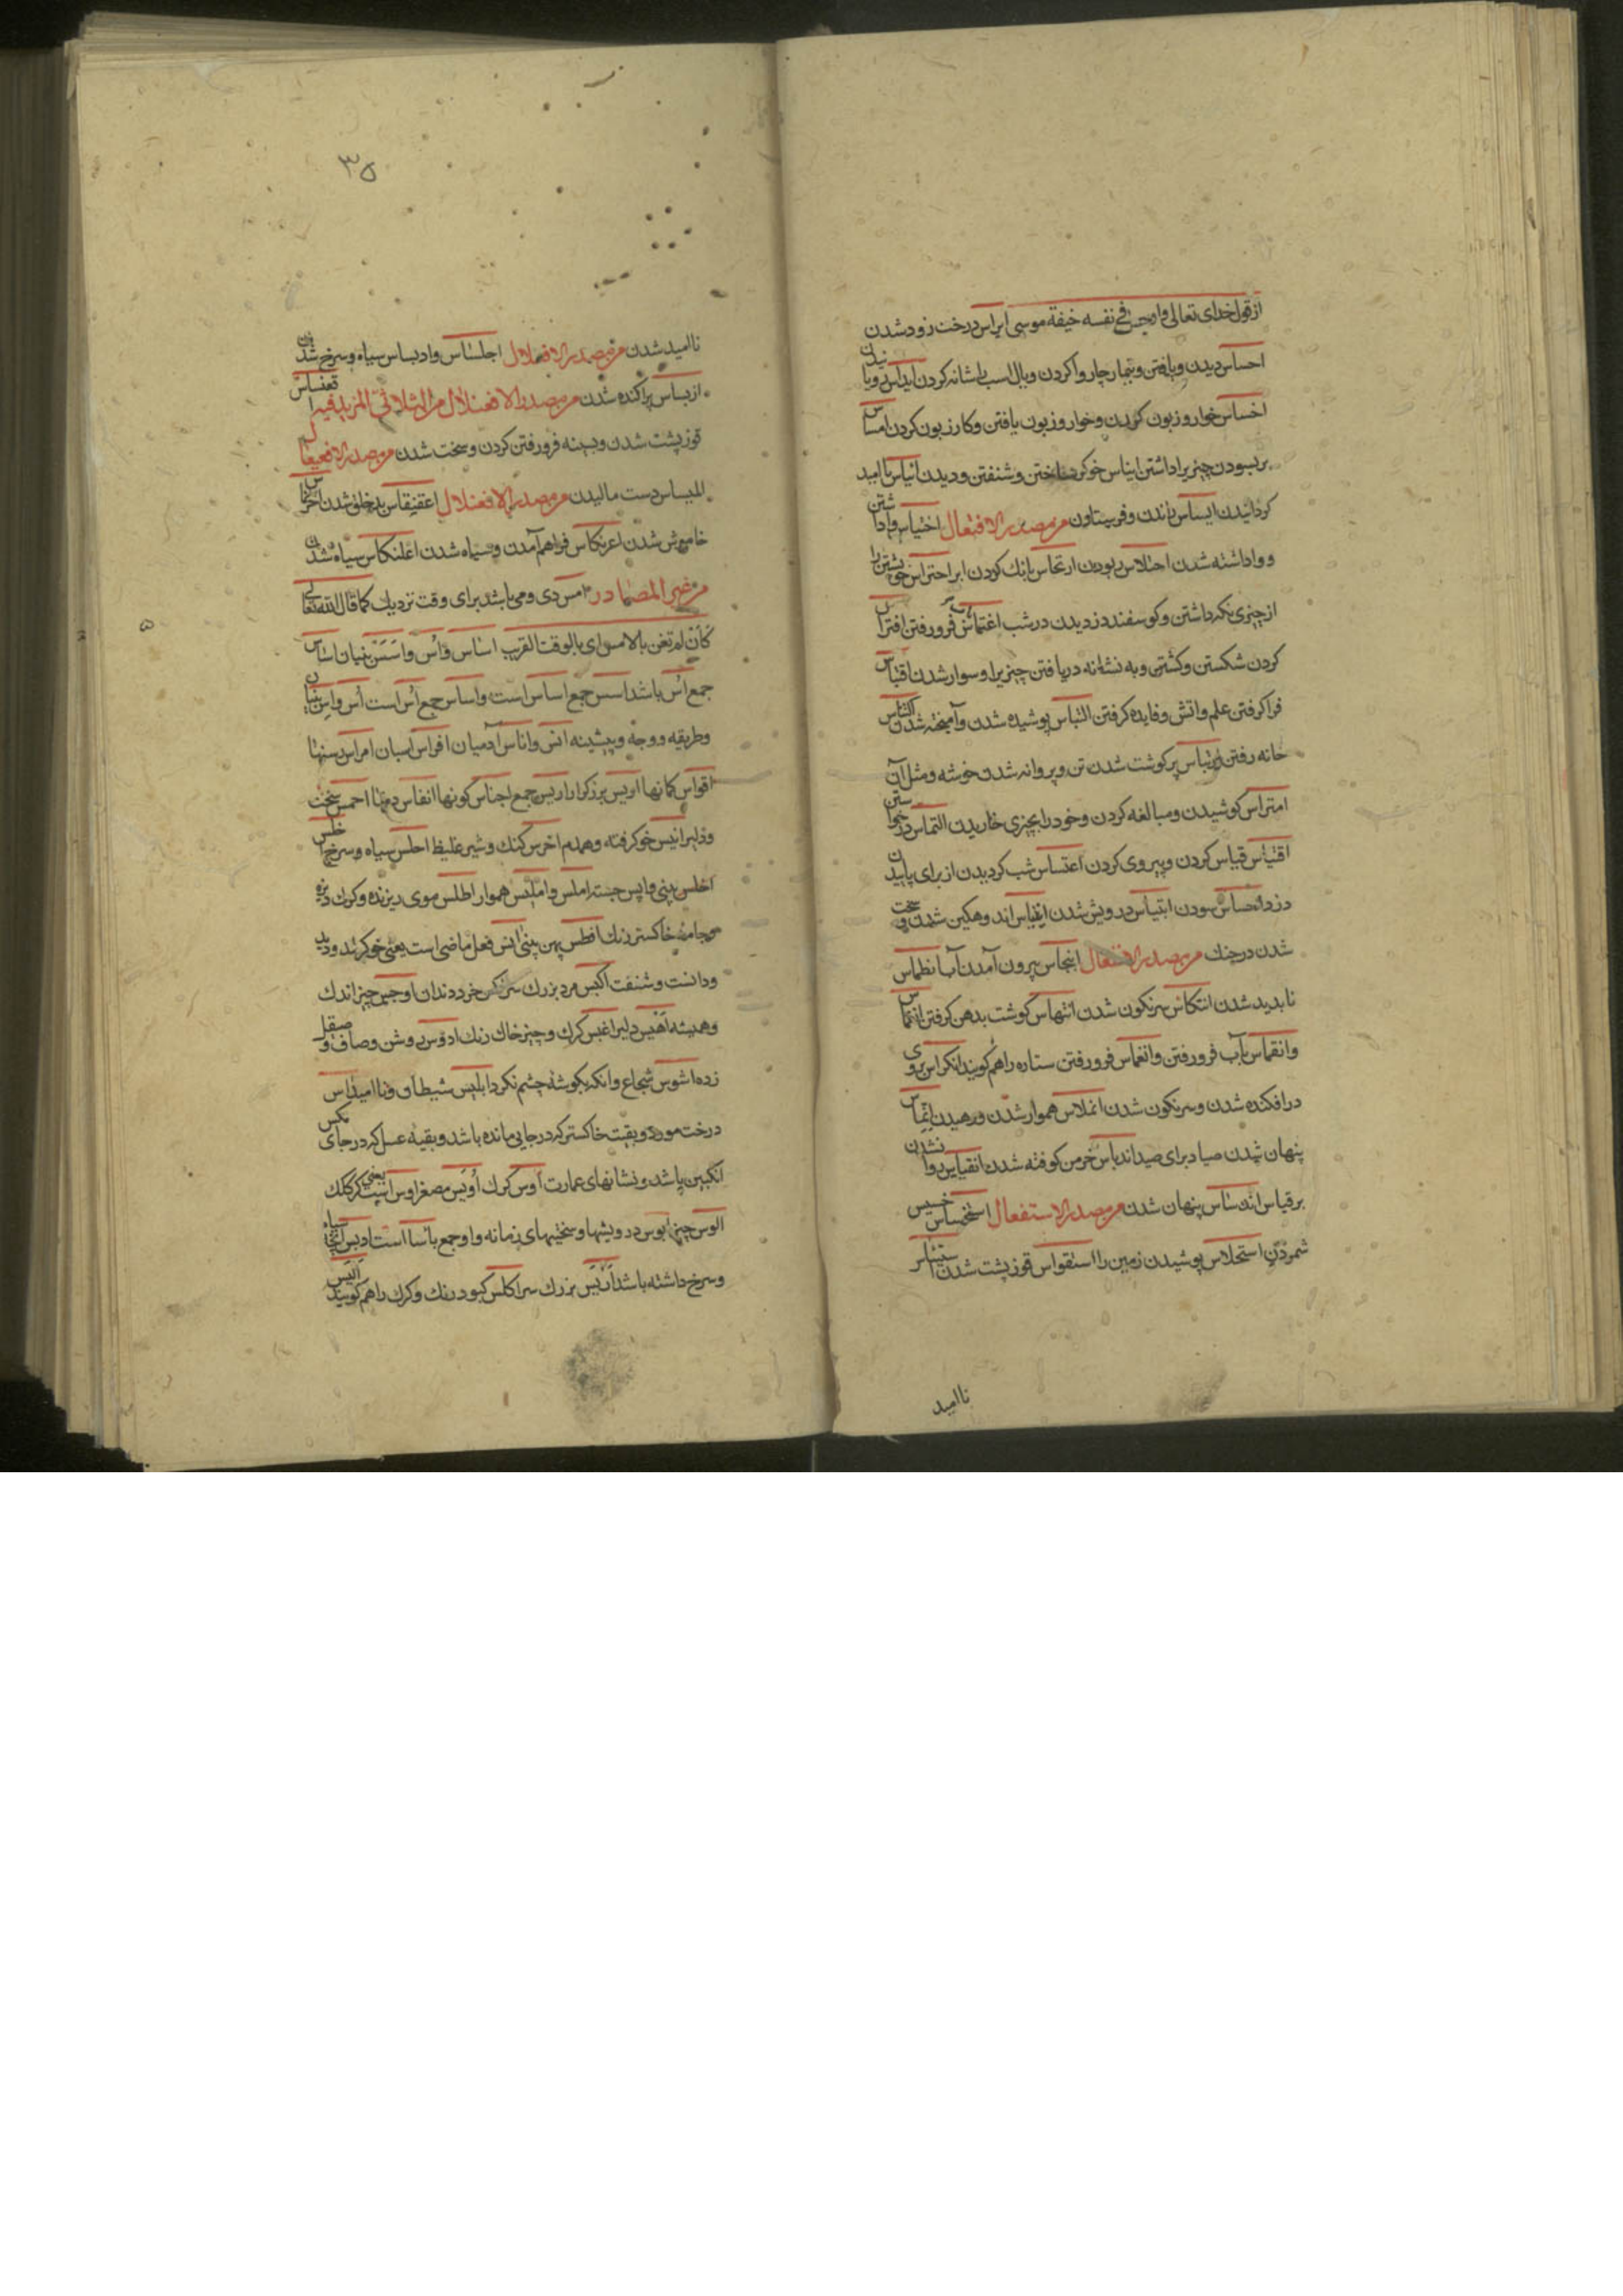 از قول خدای تعالی فاوجس فی نفسه خیفة موسی ایراس درخت زود شدن
احساس دیدن و یافتن و تیمار چاروا کردن و بال اسب را شانه کردن
اخساس خوار و زبون کردن و خوار و زبون یافتن و کار زبون کردن امساس
بر بسودن چیزیرا داشتن ایناس خو کردن وشنفتن ودیدن ایاس ناامید
کردانیدن ایساس راندن و فریستاون من مصدر الافتعال احتباس واداشتن
و واداشته شدن اختلاس ربودن ارتجاس بانک کردن ابر احتراس خویشتن را
از چیزی نکه داشتن و کوسفند دزدیدن در شب اغتماس فرو رفتن افتراس
کردن شکستن و کشتی و به نشانه دریافتن چیزیرا و سوار شدن اقتباس
فرا کرفتن علم واتش و فایده کرفتن التباس پوشیده شدن وآمیخته شدن
خانه رفتن ارتباس پر کوشت شدن تن و پر دانه شدن خوشه ومثل آن
امتراس کوشیدن ومبالغه کردن وخود را بچیزی خاریدن التماس درخواستن
اقتیاس قیاس کردن و پیروی کردن اعتساس شب کردیدن از برای پاییدن
دزد سودن ابتیاس درویش شدن اندوهکین شدن وسخت
شدن در جنک من مصدر الانفعال انبجاس بیرون آمدن آب انطماس
ناپدید شدن انتکاس سرنکون شدن انتهاس کوشت بدهن کرفتن انغماس
وانقماس بآب فرو رفتن وانغماس فرو رفتن ستاره راهم کویند انکراس بروی
درافکنده شدن وسرنکون شدن انملاس هموار شدن ورهیدن
پنهان شدن صیاد برای صید اندیاس خرمن کوفته شدن انقیاس روا نشدن
بر قیاس اندساس پنهان شدن من مصدر الاستفعال استخساس خسیس
شمردن استحلاس پوشیدن زمین را استقواس قوز پشت شدن
ناامید
۳۵
ناامید شدن من مصدر الافعلال اجلساس وادبساس سیاه وسرخ شدن
اربساس پراکنده شدن من مصدر الافعنلال من الثلاثی المزید فیه اقعنساس
قوز پشت شدن وبسینه فرو رفتن کردن وسخت شدن من مصدر الافعیعال
دست مالیدن من مصدر الافعنلال اعقنفاس بدخلق شدن
خاموش شدن اعرنکاس فراهم آمدن وسیاه شدن اعلنکاس سیاه شدن
من غیر المصادر امس دی ومی باشد برای وقت نزدیک کما قال الله تعالی
کان لم تغن بالامس ای بالوقت القریب اساس واس واسس بنیان اساس
جمع اس باشد اسس جمع اساس است واساس جمع اس است اس واس بنیان
وطریقه و وجه وپیشینه انس واناس آدمیان افراس اسبان امراس رسنها
اقواس کمانها اریس برزکر اراریس جمع اجناس کونها انفاس دمها احمس سخت
ودلیر انیس خو کرفته وهمدم اخرس کنک وشیر غلیظ احلس سیاه وسرخ
اخلس بینی واپس جسته املس واملیس هموار اطلس موی ریزنده وکرک
وجامه خاکستر رنک افطس پهن بینی انس فعل ماضی است یعنی خو کرد ودید
ودانست وشنفت اکبس مرد بزرک سر خرد دندان اوجس چیز اندک
وهمیشه اهیس دلیر اغبس کرک وچیز خاک رنک ادوس روشن وصاف وصیقل
زده اشوس شجاع وانکه بکوشه چشم نکرد ابلیس شیطان وناامید آس
درخت مورد وبقیت خاکستر که در جایی مانده باشد وبقیه عسل که در جای مکس
انکبین باشد ونشانهای عمارت اوس کرک اویس مصغر اوس
الوس چیز ابوس درویشها وسختیهای زمانه واو جمع باسا است ادبس
وسرخ داشته باشد اریس بزرک سر اکلس کبود رنک وکرک راهم کویند الیس